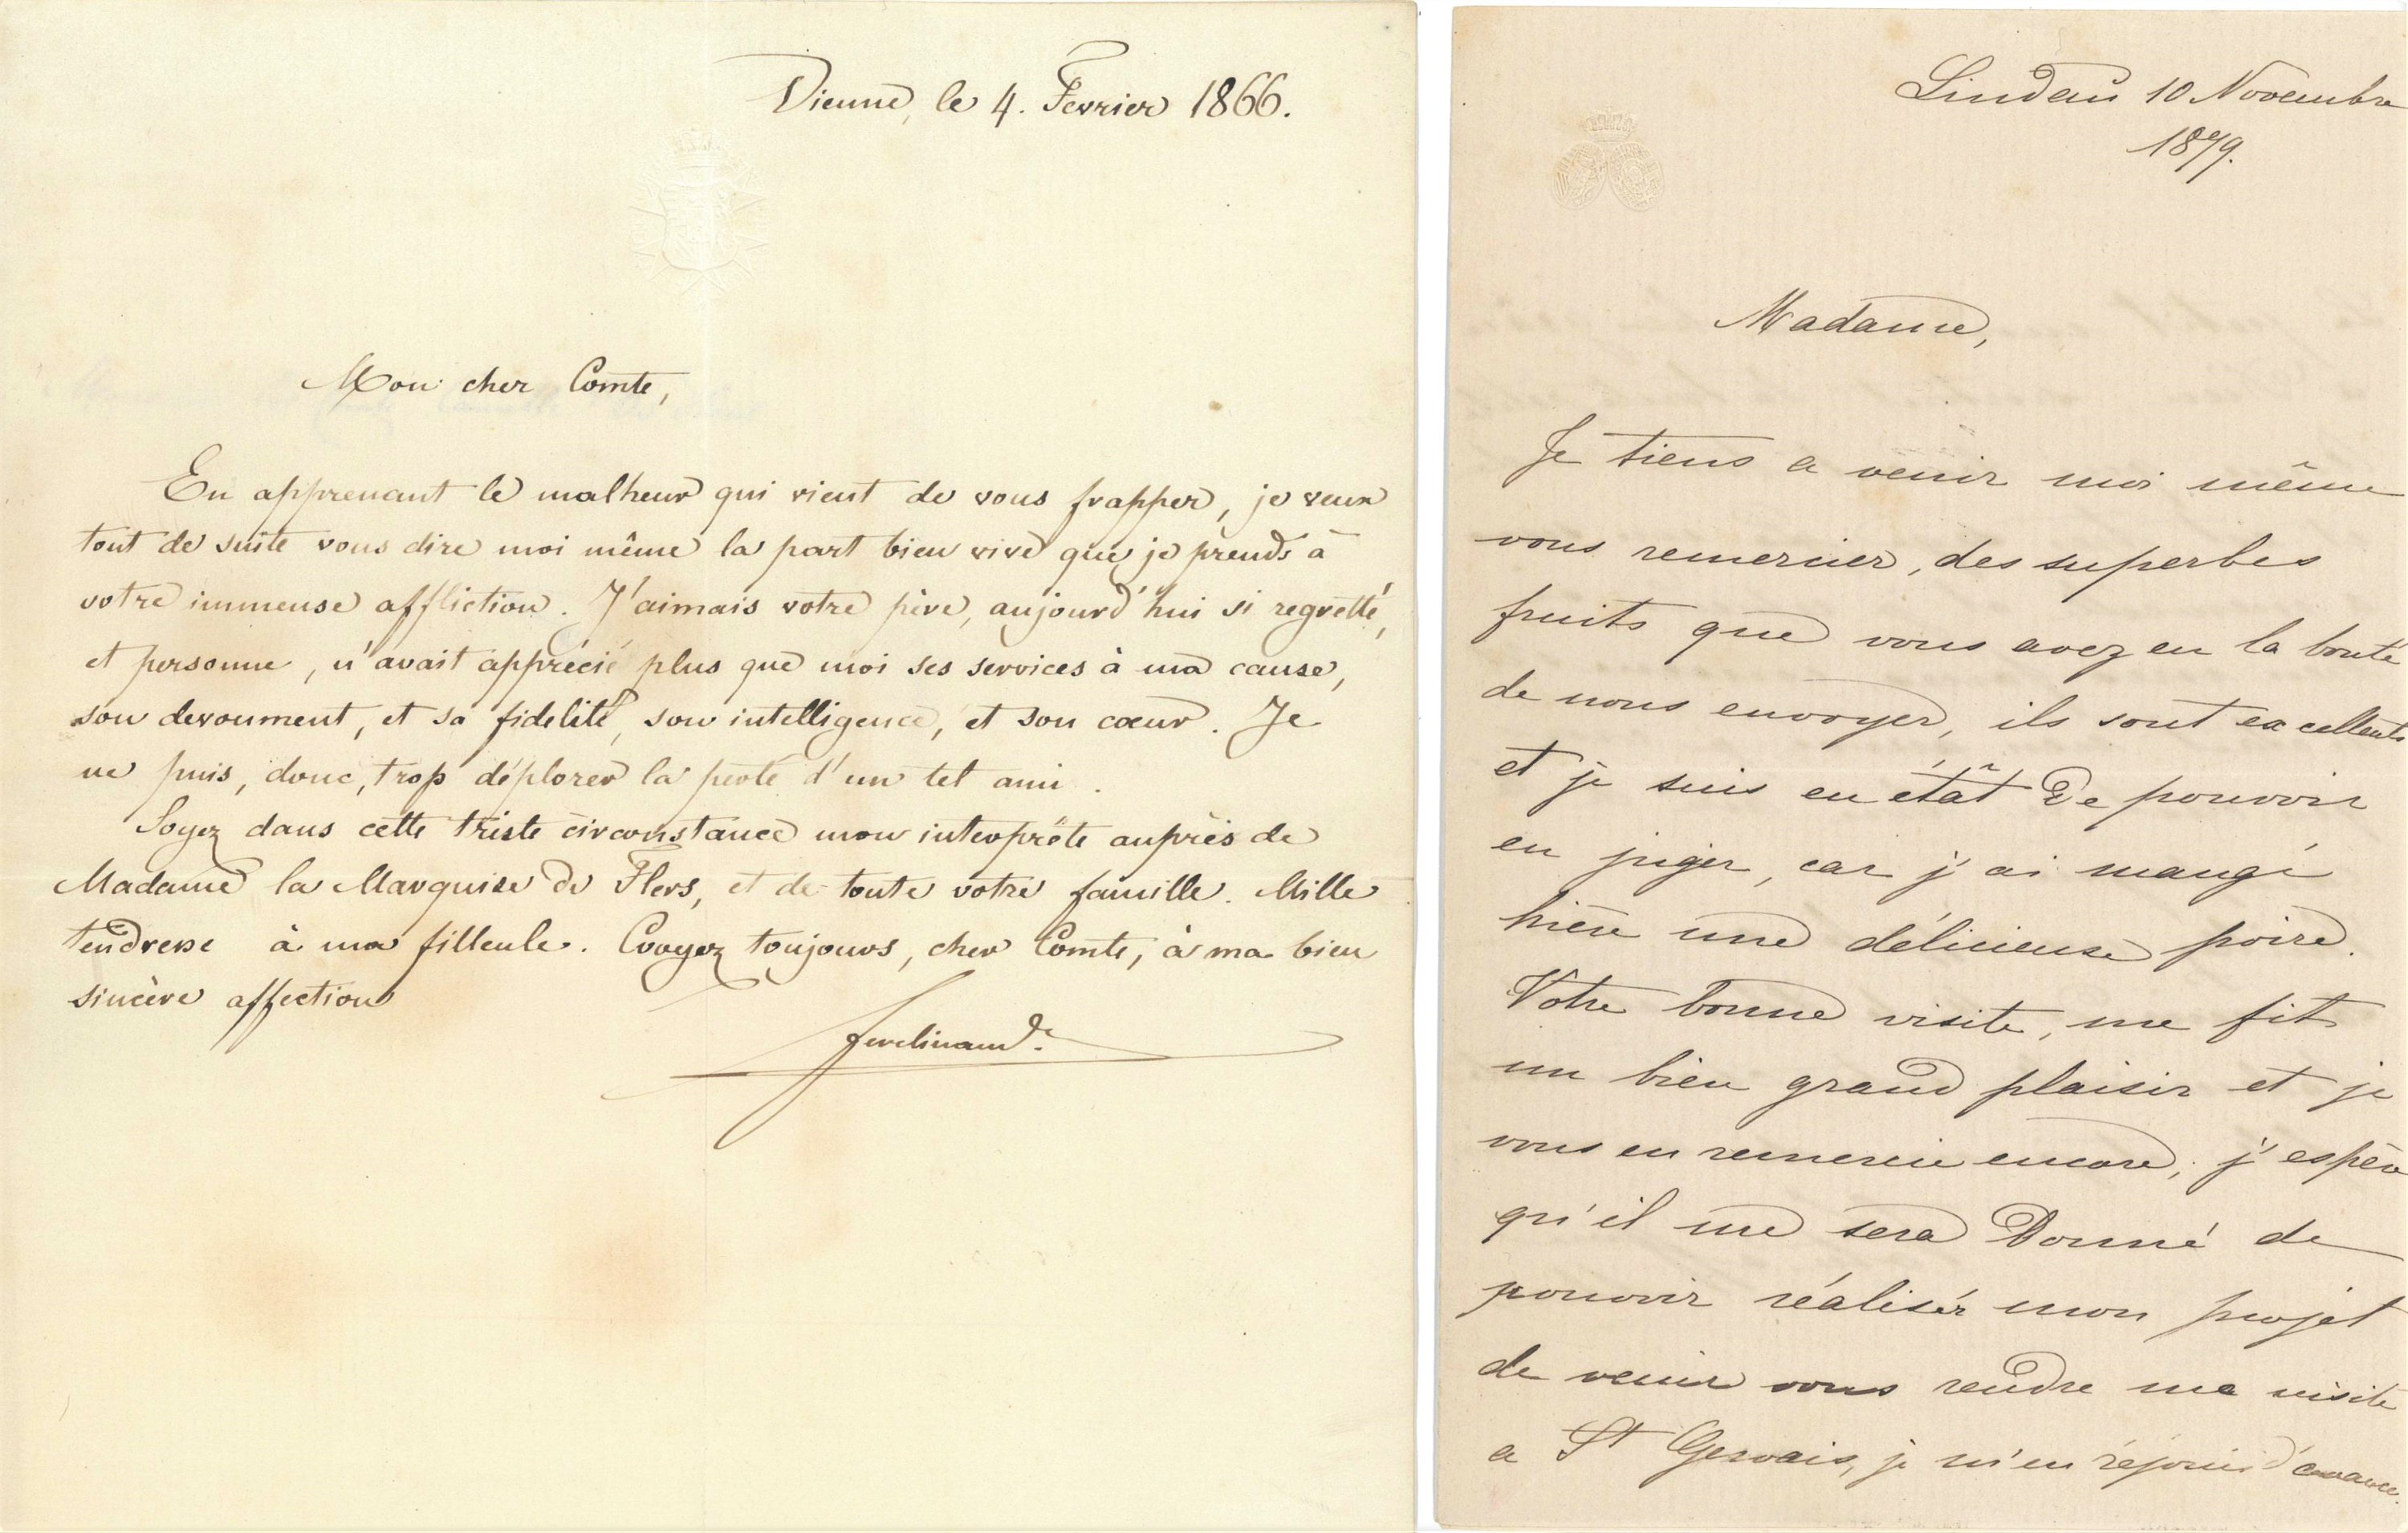 Vienne, le 4. Fevrier 1866.
Mon cher Comte,
En apprenant le malheur qui vient de vous frapper, je veux
tout de suite vous dire moi même la part bien vive que je prends à
votre immense affliction. J'aimais votre père, aujourd'hui si regretté,
et personne, n'avait apprécié plus que moi ses services à ma cause,
son devoument, et sa fidelité, son intelligence, et son cœur. Je
ne puis, donc, trop déplorer la perte d'un tel ami.
Soyez dans cette triste circonstance mon interprète auprès de
Madame la Marquise de Flers, et de toute votre famille. Mille
tendresse à ma filleule. Croyez toujours, cher Comte, à ma bien
sincère affection
Ferdinand.
Lindau 10 Novembre
1879.
Madame,
Je tiens a venir moi même
vous remercier, des superbes
fruits que vous avez eu la bonté
de nous envoyer, ils sont excellents
et je suis en étât de pouvoir
en juger, car j'ai mangé
hièr une délicieuse poire.
Votre bonne visite, me fit
un bien grand plaisir et je
vous en remercie encore, j'espère
qu'il me sera donné de
pouvoir réalisér mon projet
de venir vous rendre ma visite
a St Gervais, je m'en réjouis d'avance.